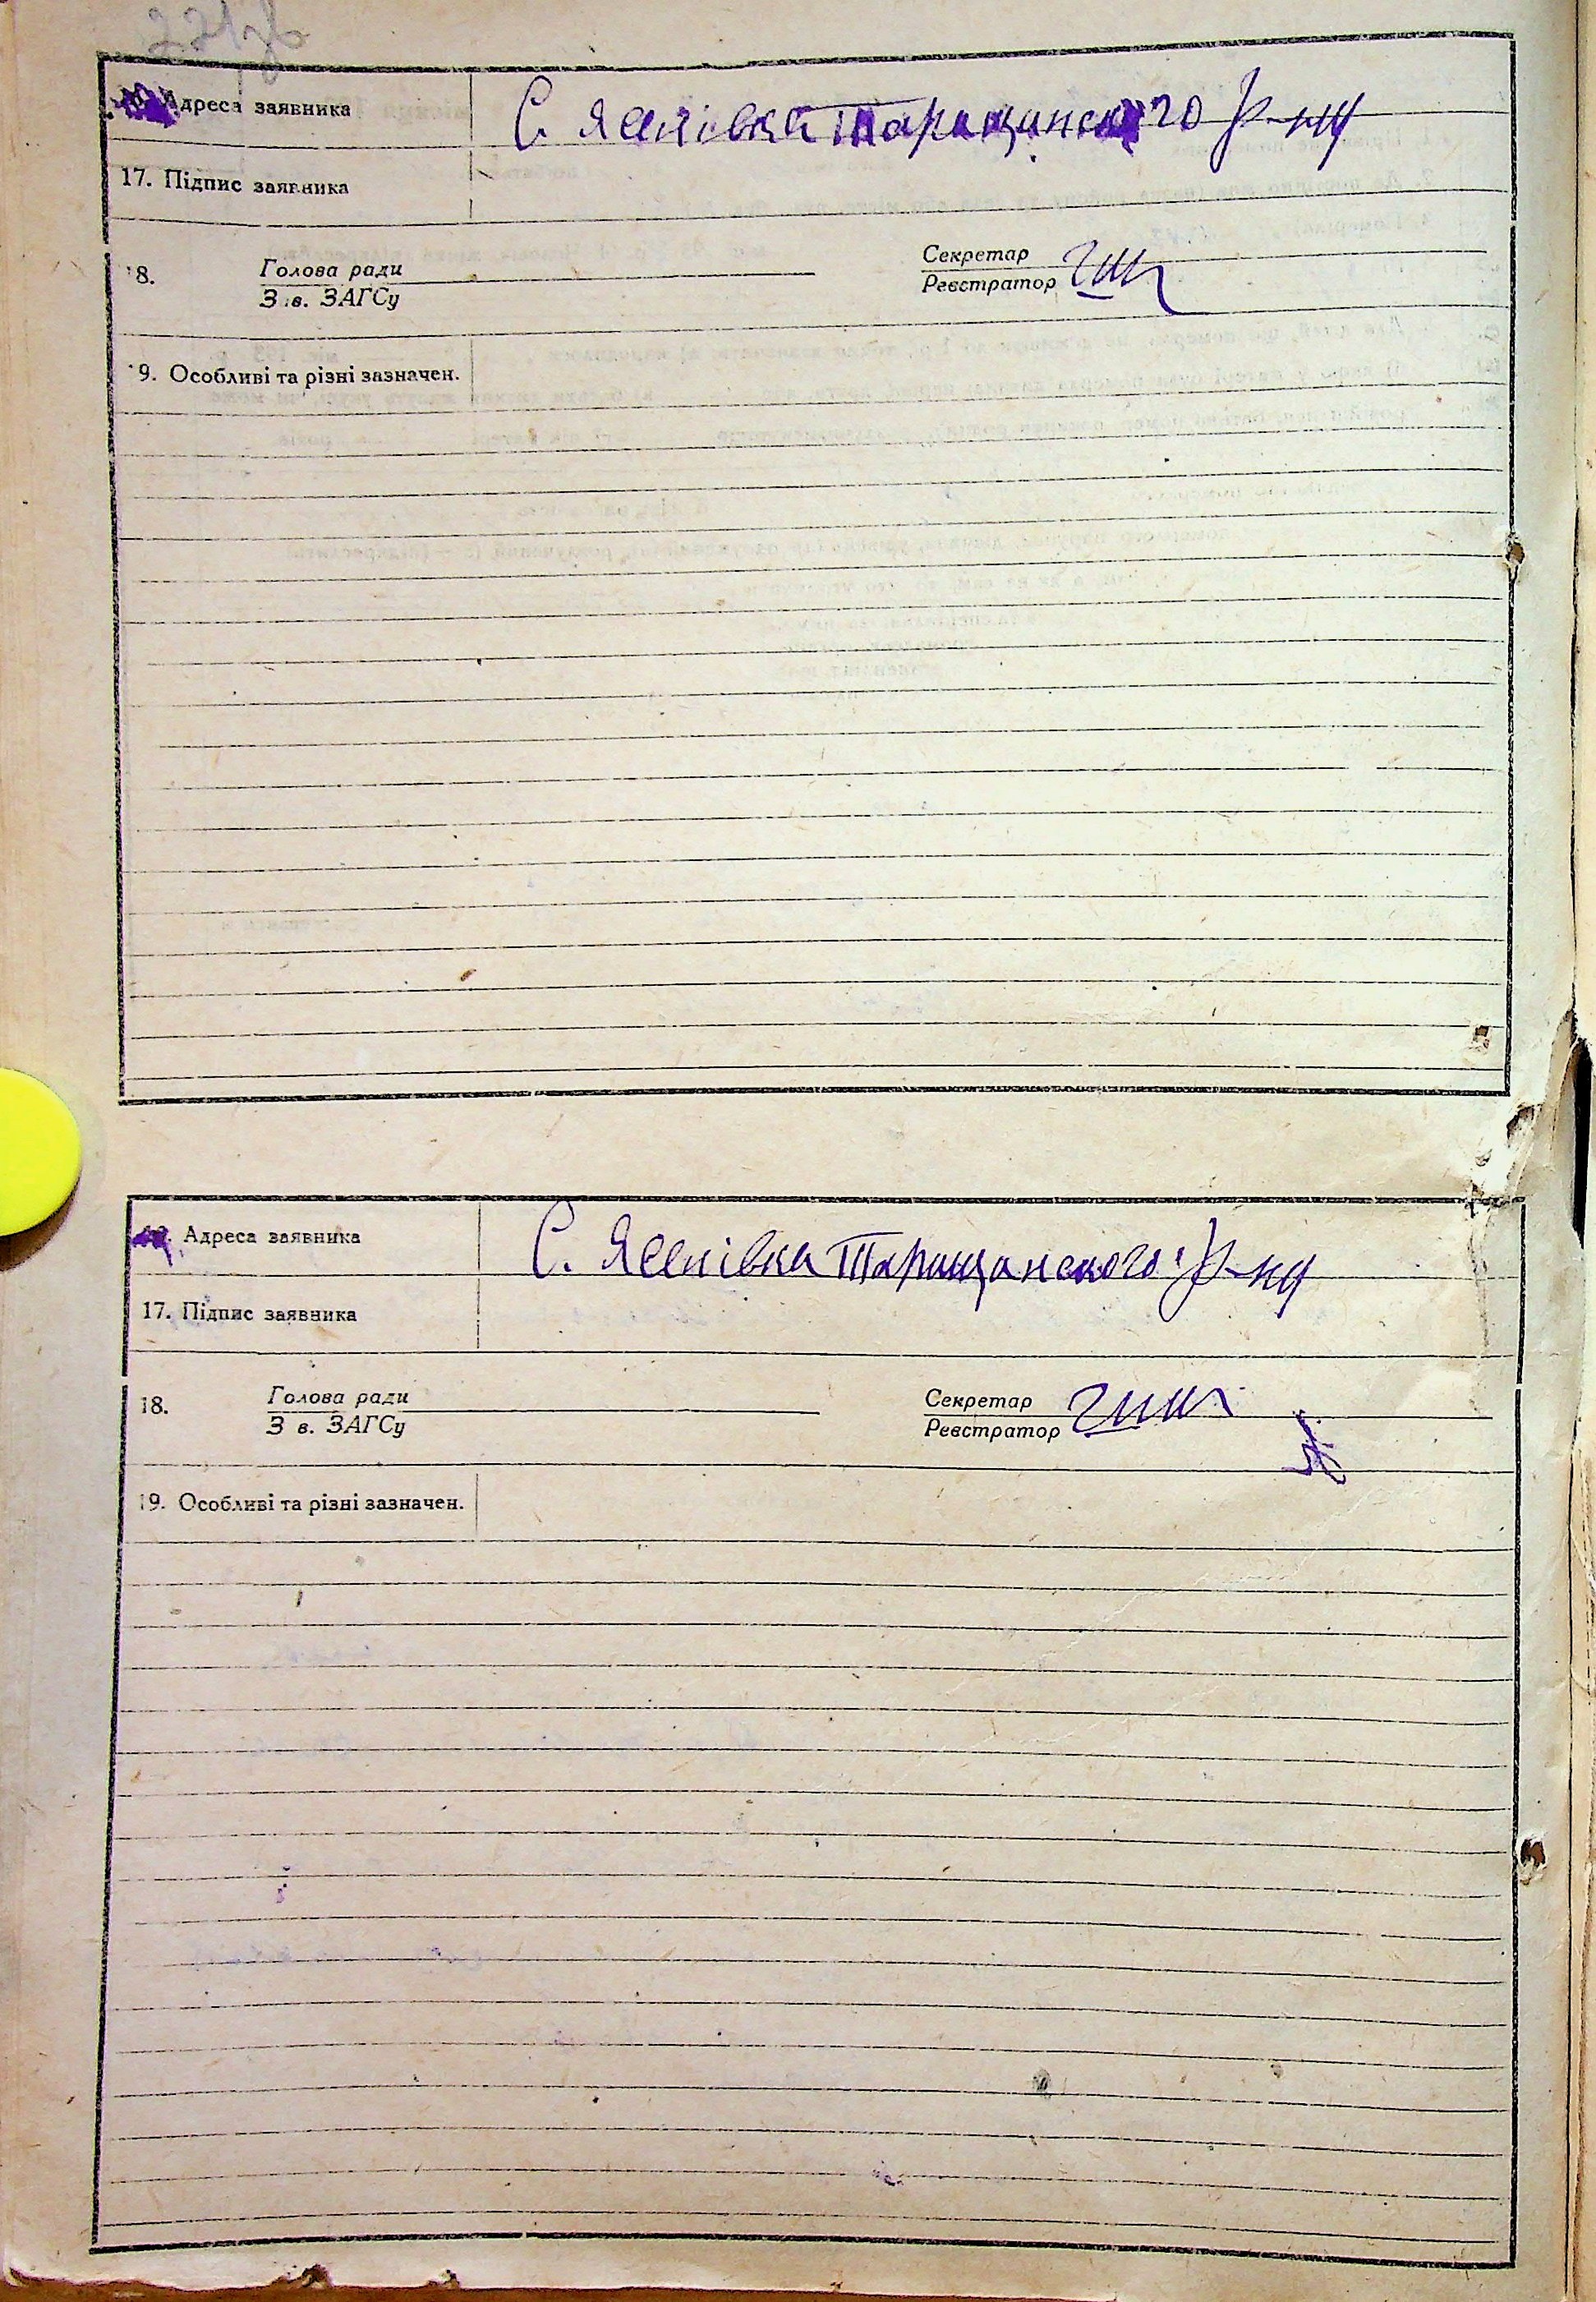 221зв
Адреса заявника С. Яснівка Таращанського р-ну
17. Підпис заявника
18. Голова ради Секретар
Зав. ЗАГСу Реєстратор
19. Особливі та різні зазначен.
Адреса заявника С. Яснівка Таращанского р-ну
17. Підпис заявника
18. Голова ради Секретар
З в. ЗАГСу Реєстратор
19. Особливі та різні зазначен.